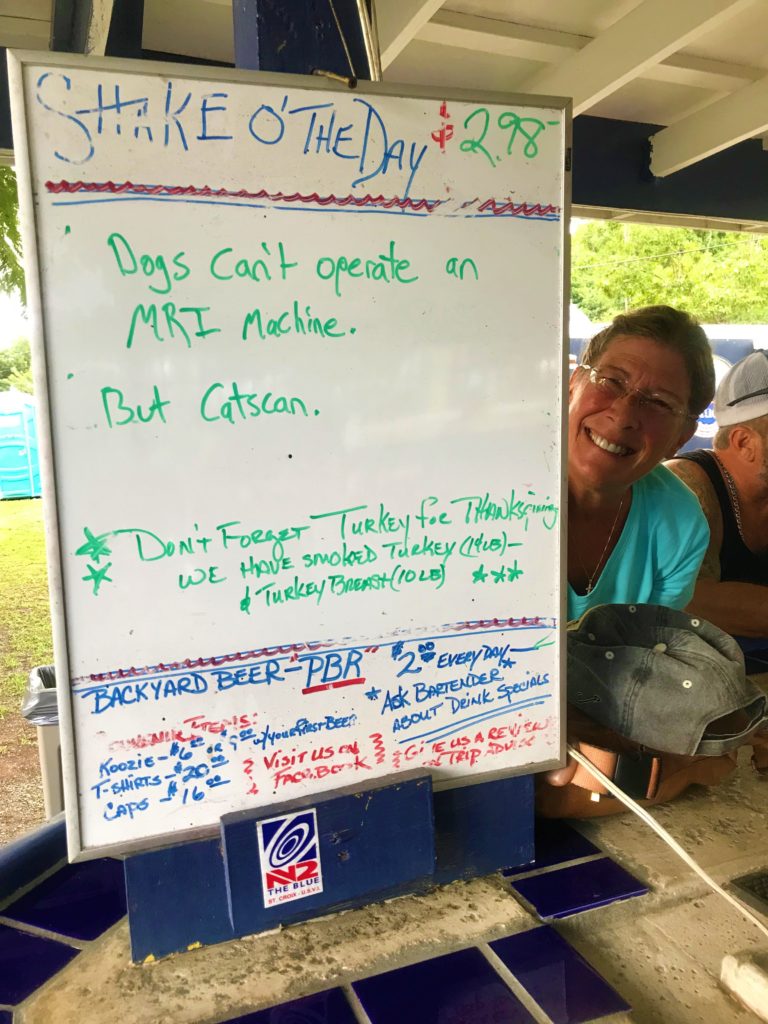 SHAKE O' THE DAY $2.98
Dogs Can't operate an
MRI Machine.
But Catscan.
* DON'T FORGET TURKEY for THANKSgiving
* WE HAVE SMOKED TURKEY (14LB) -
& TURKEY BREAST (10 LB) ***
BACKYARD BEER - "PBR" $2.00 EVERYDAY -
* ASK BARTENDER *
ABOUT DRINK SPECIALS
ITEMS:
KOOZIE - $6.00 OR $ .00 w/YOUR FIRST BEER
T-SHIRTS - $20.00
CAPS - $16.00
VISIT US ON
FACEBOOK
GIVE US A REVIEW
ON TRIP ADVISOR
N2
THE BLUE
ST. CROIX - U.S.V.I.